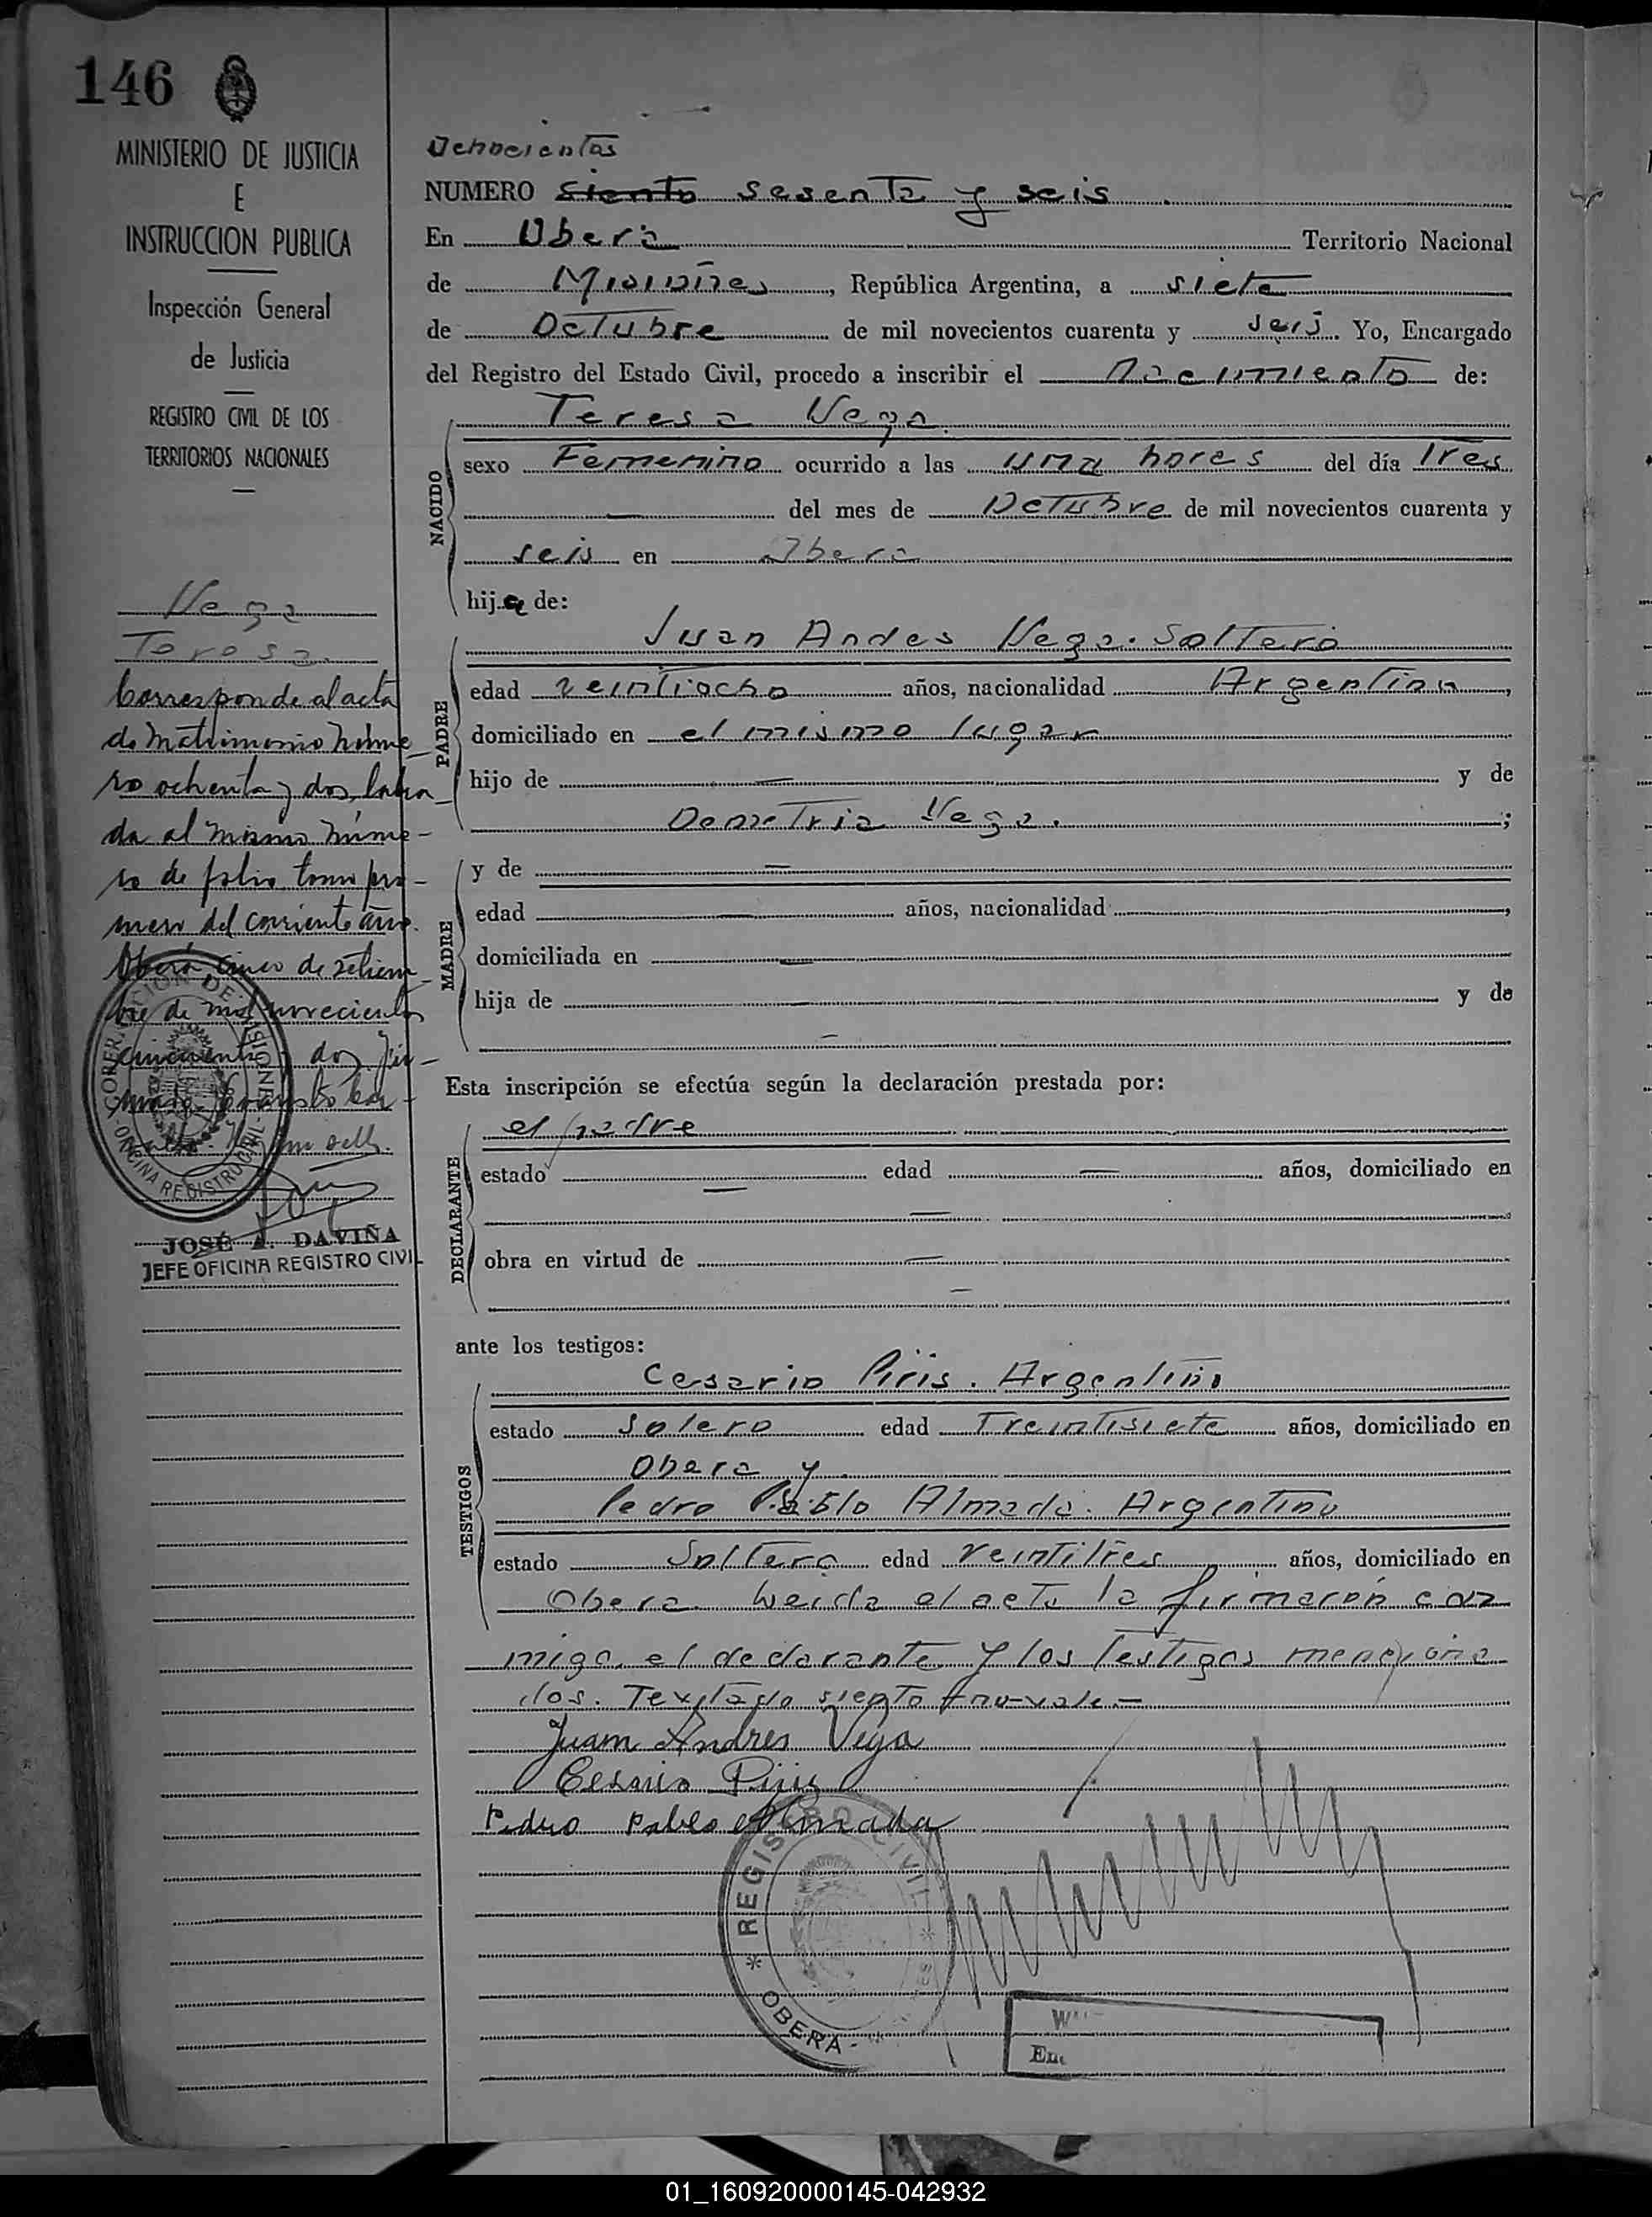 146
MINISTERIO DE JUSTICIA
E
INSTRUCCION PUBLICA
Inspección General
de Justicia
REGISTRO CIVIL DE LOS
TERRITORIOS NACIONALES
Vega
Teresa
Corresponde al acta
de Matrimonio núme
ro ochenta y dos, labra
da al mismo núme-
ro de folio tomo pri-
mero del corriente año.
Oberá, cinco de setiem
bre de mil novecientos
cincuenta y dos
JOSÉ A. DAVIÑA
JEFE OFICINA REGISTRO CIVIL
Ochocientos
NUMERO siento sesenta y seis
En Oberá Territorio Nacional
de Misiones, República Argentina, a siete
de Octubre de mil novecientos cuarenta y seis. Yo, Encargado
del Registro del Estado Civil, procedo a inscribir el Nacimiento de:
Teresa Vega
NACIDO
sexo Femenino ocurrido a las una hores del día Tres
del mes de Octubre de mil novecientos cuarenta y
seis en Obera
hija de:
PADRE
Juan Andes Vega. Soltero
edad veintiocho años, nacionalidad Argentino,
domiciliado en el mismo lugar
hijo de — y de
Demetria Vega. ;
MADRE
y de —
edad — años, nacionalidad ,
domiciliada en —
hija de — y de
—
Esta inscripción se efectúa según la declaración prestada por:
DECLARANTE
el padre
estado — edad — años, domiciliado en
—
obra en virtud de —
—
ante los testigos:
TESTIGOS
Cesario Piris. Argentino
estado Solero edad Treintisiete años, domiciliado en
Obera y
Pedro Pablo Almada. Argentino
estado Soltero edad Veintitres años, domiciliado en
Obera. Leida el acta la firmaron con
migo, el declarante y los Testigos menciona
dos. Textado siento no-vale.-
Juan Andres Vega
Cesario Piris
Pedro Pablo Almada
* REGISTRO CIVIL *
OBERA -
01_160920000145-042932